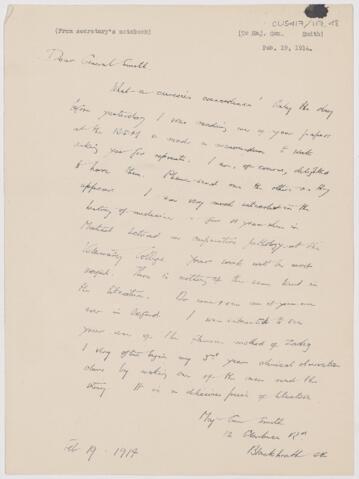 CUS417/117.48
(From secretary's notebook) [To Maj. Gen. Smith]
Feb. 19, 1914.
Dear General Smith
What a curious coincidence! Only the day
before yesterday I was reading one of your papers
at the & made a memorandum to write
asking you for reprints. I am, of course, delighted
to have them. Please send me the others as they
appear. I am very much interested in the
history of medicine & for years when in
Montreal lectured on comparative pathology at the
Veterinary College. Your work will be most
useful. There is nothing of the same kind in
the literature. Do come & see me if you are
ever in Oxford. I was interested to see
your view of the method of
I very often begin my 3rd year clinical
class by making one of the men read the
story. It is a delicious piece of literature.
Maj. Gen Smith
12 Rd
Blackheath SE
Feb 19 - 1914